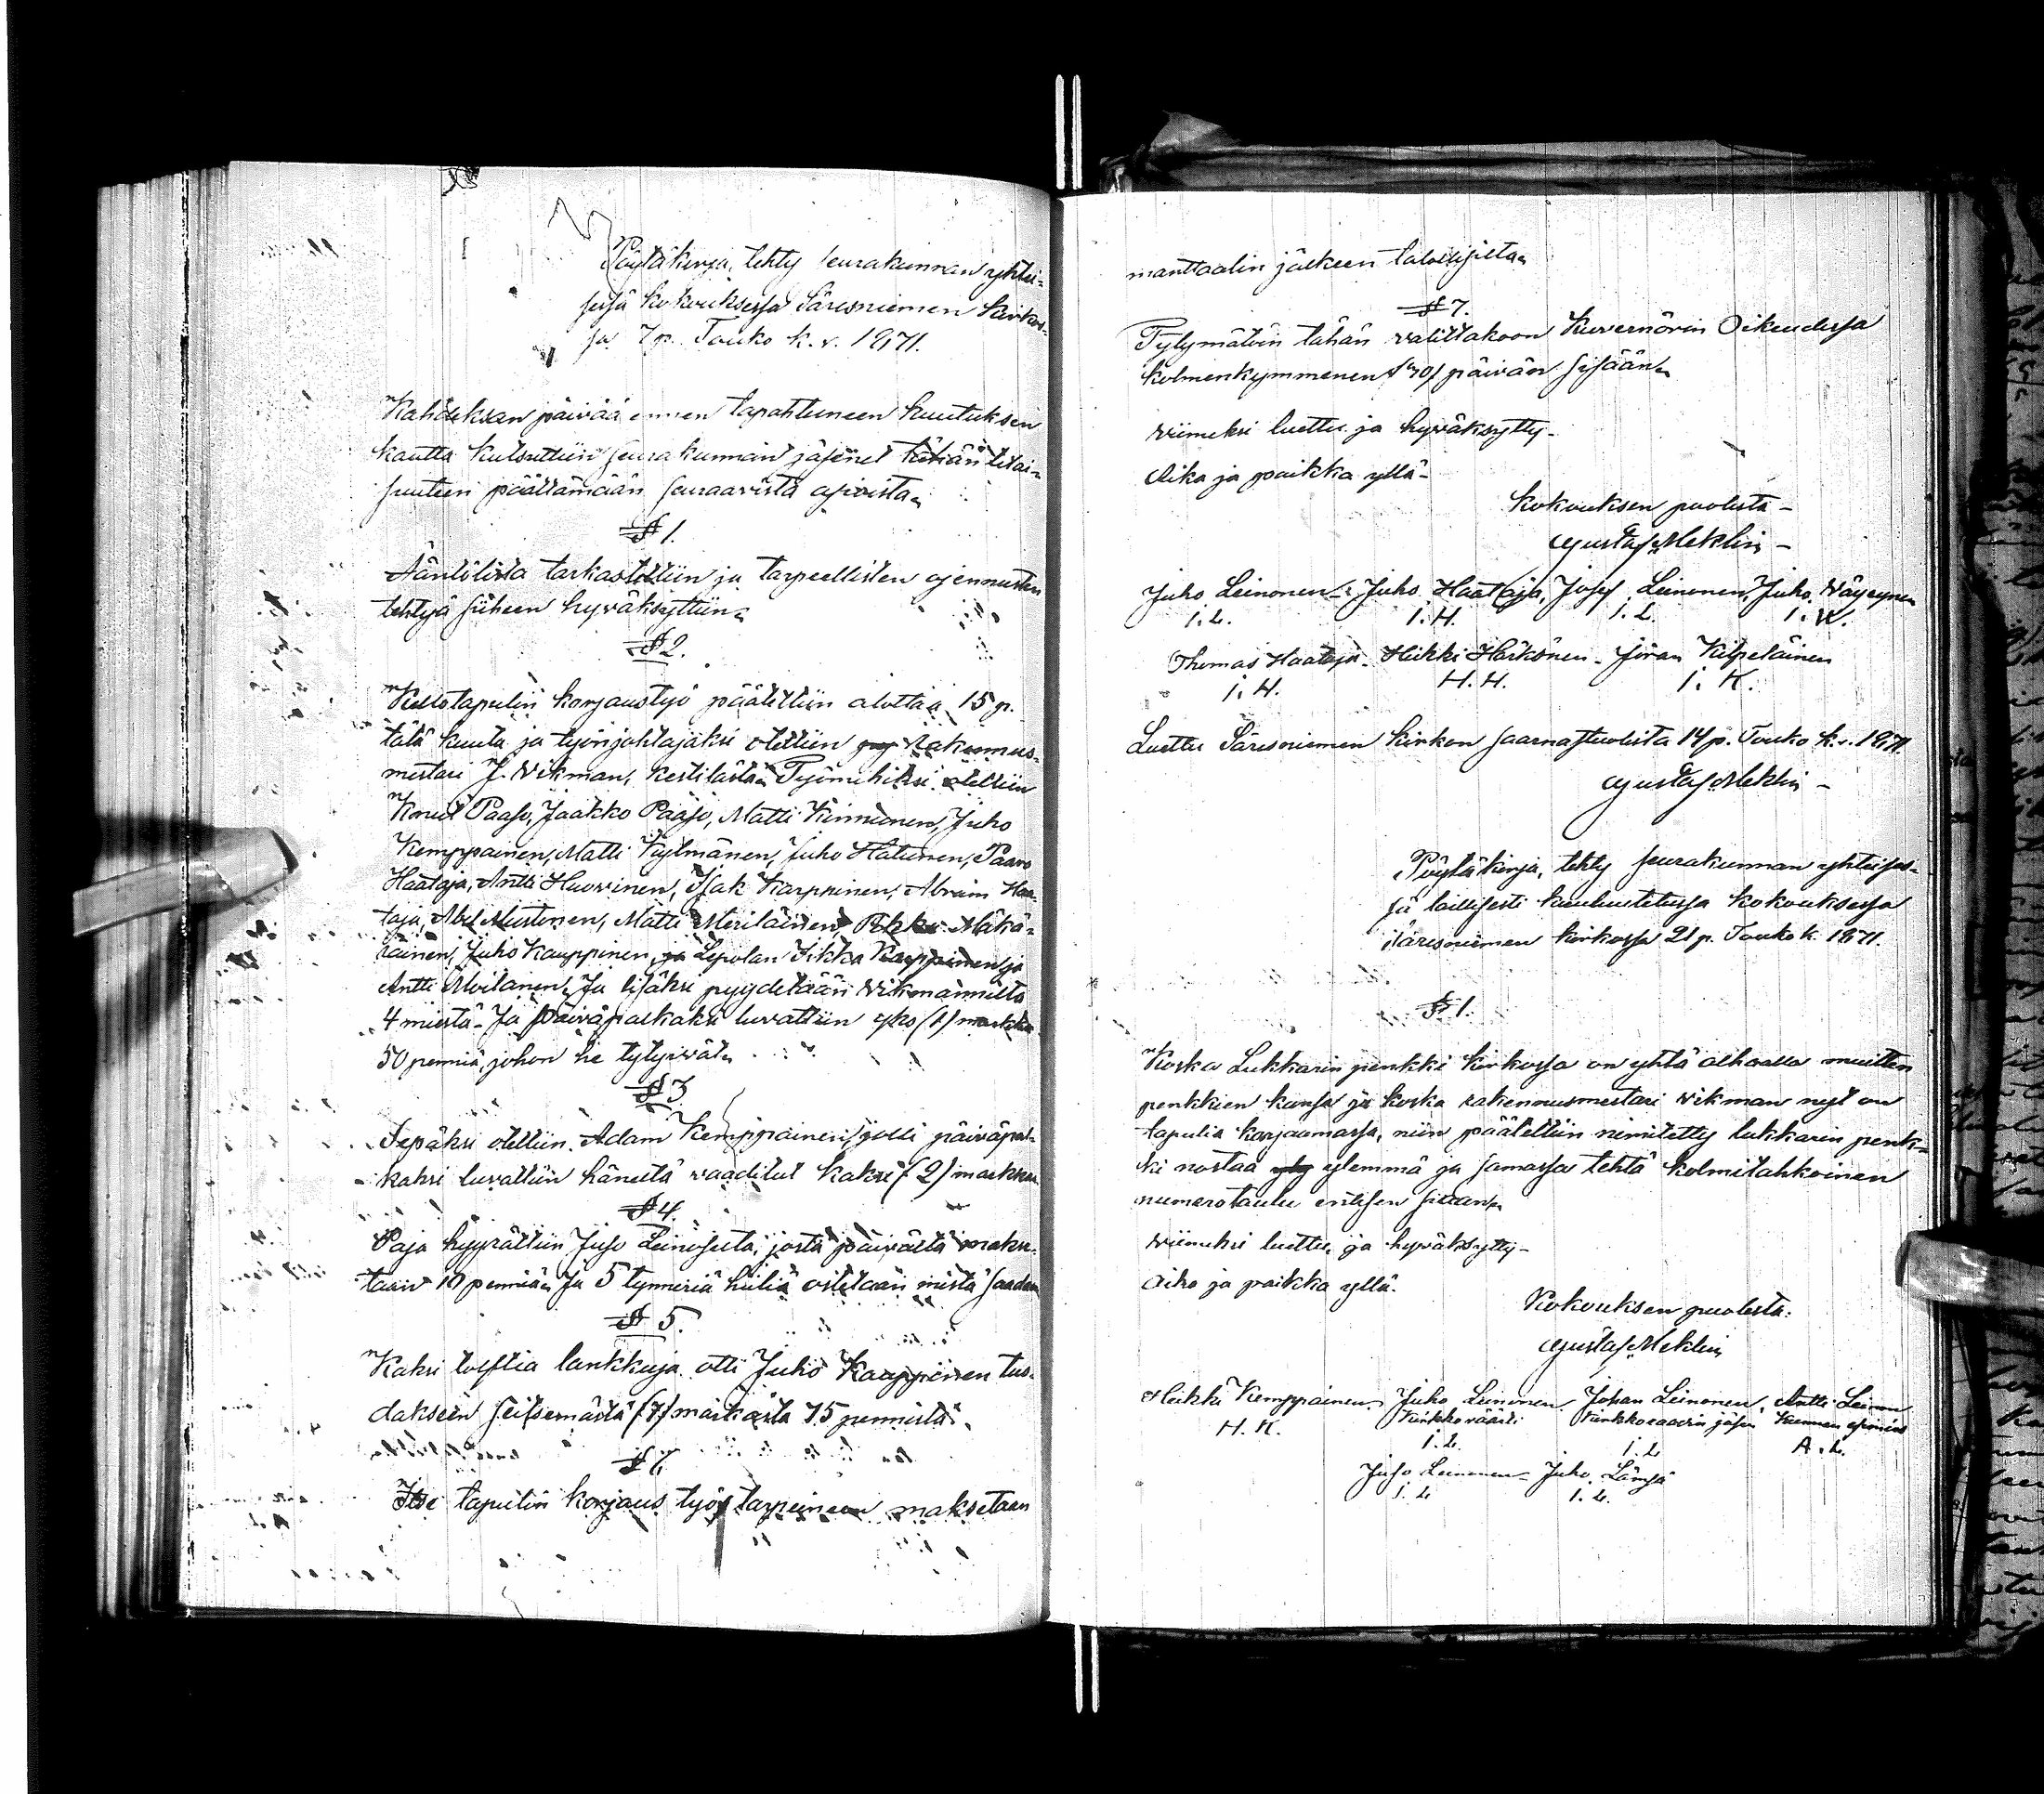 Pöytäkirja, tehty seurakunnan yhtei-
sessä kokouksessa Säresniemen kirkos-
sa 7 p. Touko k. v. 1871.
Kahdeksan päivää ennen tapahtuneen kuulutuksen
kautta kutsuttiin seurakunnan jäsenet tähän tilai-
suuteen päättämään seuraavista asioista.
§ 1.
Äänlölista tarkastettiin ja tarpeellisten ojennusten
tehtyä siiheen hyväksyttiin.
§ 2.
Kellotapulin korjaustyö päätettiin alottaa 15 p.
tätä kuuta ja työnjohtajaksi otettiin Rakennus-
mestari J. Wikman, Kestilästä. Työmiehiksi otettiin
Knut Paaso, Jaakko Paaso, Matti Kinnunen, Juho
Kemppainen, Matti Kylmänen, Juho Hätunen, Paavo
Haataja, Antti Huovinen, Isak Karppinen, Abram Haa-
taja, Abel Mustonen, Matti Meriläinen, Pekka Mäkä-
räinen, Juho Kauppinen, ja Lepolan Iikka Karppinen ja
Antti Moilanen. Ja lisäksi pyydetään Wikmannilta
4 miestä. Ja päiväpalkaksi luvattiin yksi (1) markka
50 penniä, johon he tytyivät.
§ 3
Sepäksi otettiin Adam Kemppainen, jolle päiväpal-
kaksi luvattiin häneltä vaaditut kaksi (2) markkaa.
§ 4.
Paja hyyrättiin Juso Leinoselta, josta päivältä makse-
taan 10 penniä. Ja 5 tynneriä hiiliä ostetaan mistä saadaan
§ 5.
Kaksi tolftia lankkuja otti Juho Kauppinen tuo-
dakseen seitsemästä (7) markasta 75 pennistä.
§ 6
Itse tapulin korjaus työ tarpeineen maksetaan
manttaalin jälkeen talollisilta.
§ 7.
Tytymätöin tähän valittakoon Kuvernörin Oikeudessa
kolmenkymmenen (30) päivän sisään.
Wiimeksi luettu ja hyväksytty.
Aika ja paikka yllä.
Kokouksen puolesta
Gustaf Meklin
Juho Leinonen. Juho Haataja, Josef Leinonen. Juho Wäyrynen
I. L. I. H. I. L. I. W.
Thomas Haataja. Heikki Härkönen. Jöran Kilpeläinen
I. H. H. H. I. K.
Luettu Säresniemen Kirkon saarnastuolista 14 p. Touko k. 1871.
Gustaf Meklin
Pöytäkirja, tehty seurakunnan yhteises-
sä laillisesti kuulustetussa kokouksessa
Säresniemen kirkossa 21 p. Touko k. 1871.
§ 1.
Koska Lukkarin penkki kirkossa on yhtä alhaalla muitten
penkkien kanssa ja koska rakennusmestari Wikman nyt on
tapulia korjaamassa, niin päätettiin nimitetty lukkarin penk-
ki nostaa ylemmä ja samassa tehtä kolmitahkoinen
numerotaulu entisen sijaan.
Wiimeksi luettu ja hyväksytty.
Aika ja paikka yllä.
Kokouksen puolesta.
Gustaf Meklin
Heikki Kemppainen. Juho Leinonen Johan Leinonen. Antti Leinonen
H. K. Kirkkoväärti Kirkkoraadin jäsen Kunnan esimies
I. L. I. L. A. L.
Juso Leinonen. Juho Lämsä
I. L. I. L.